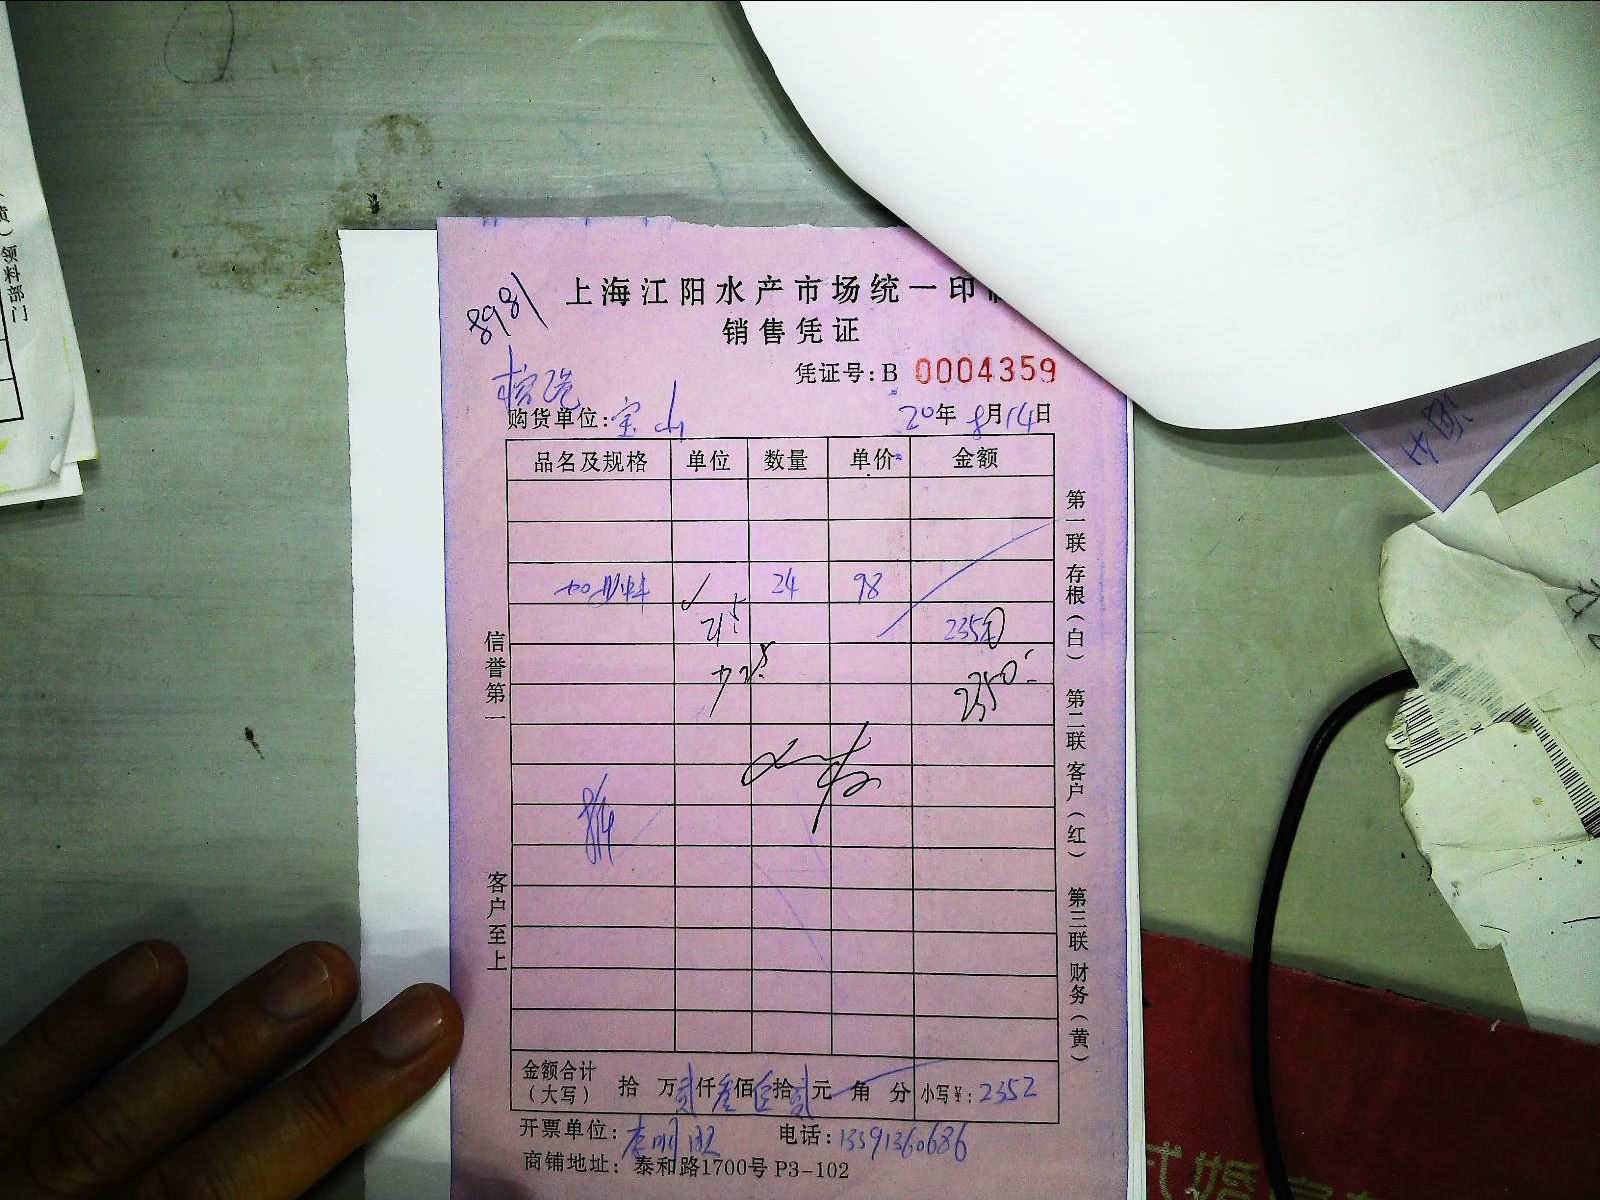 8981
上海江阳水产市场统一印
销售凭证
凭证号:B 0004359
购货单位:宝山 20年8月14日
品名及规格 单位 数量 单价 金额
24 98
2352
2350
8/14
金额合计（大写） 拾 万贰仟叁佰伍拾贰元 角 分 小写¥:2352
开票单位: 电话:13391360686
商铺地址: 泰和路1700号 P3-102
信誉第一
客户至上
第一联 存根（白） 第二联 客户（红） 第三联 财务（黄）
黄）领料部门
式婚